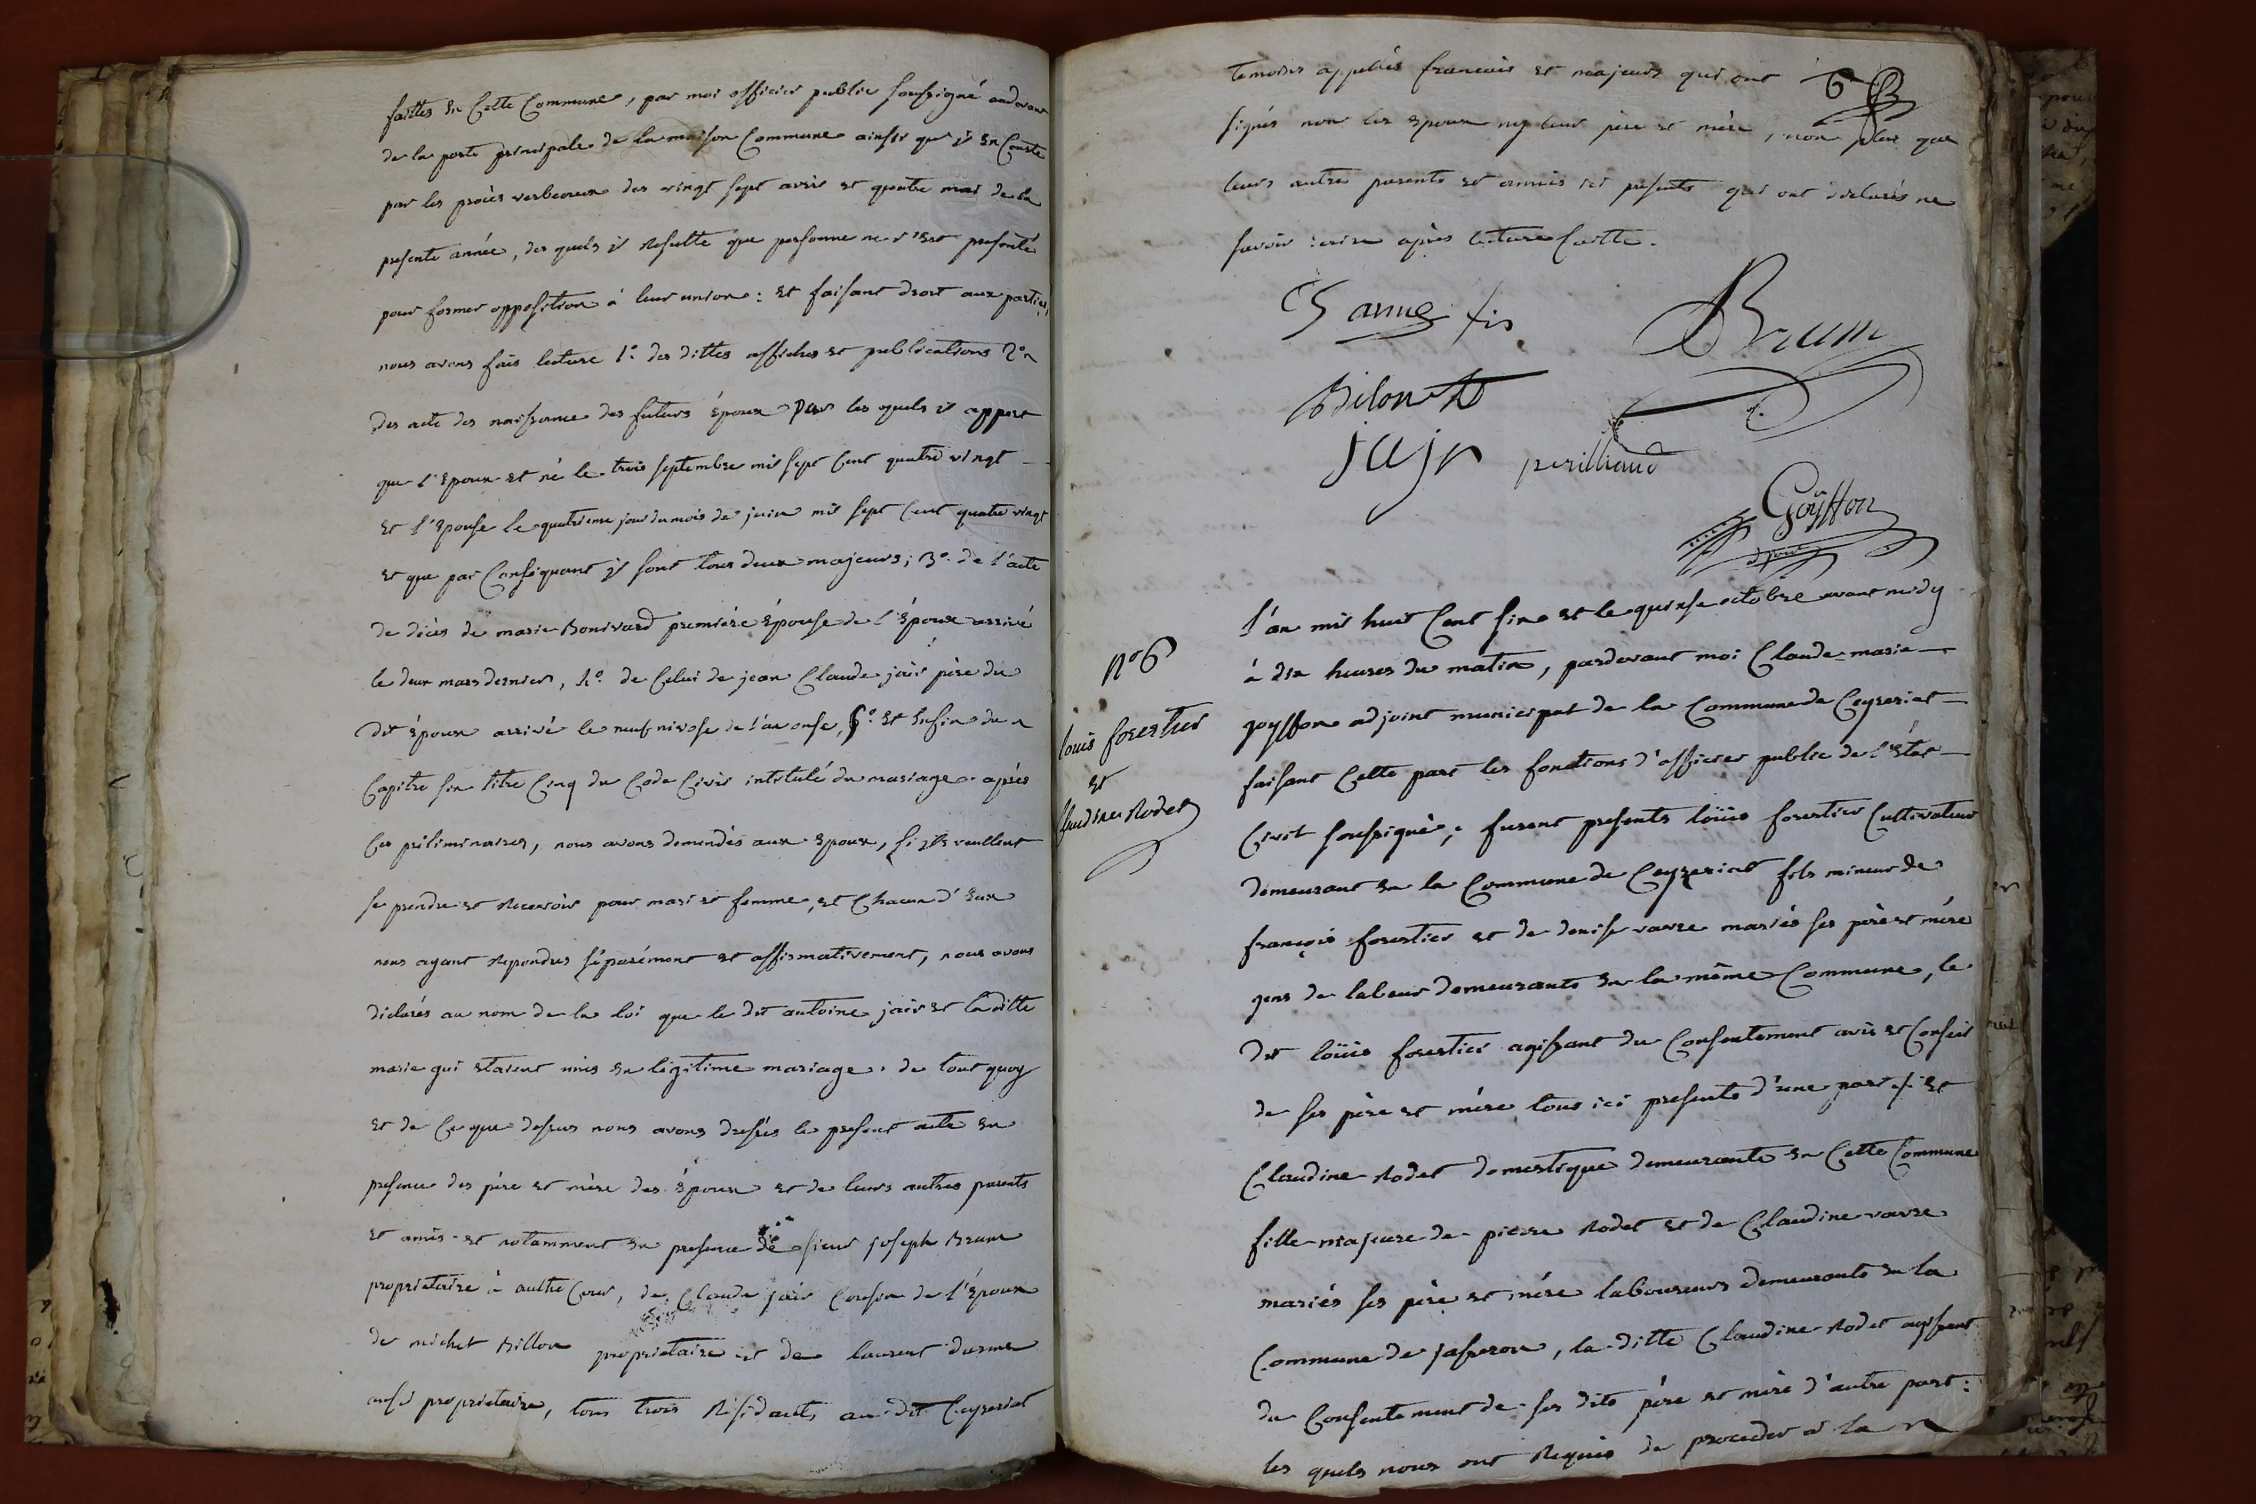 faittes en Cette Commune, par moi officier public soussigné audevant
de la porte principale de la maison Commune ainssi qu'il en Conste
par les procès verbeaux des vingt sept avril et quatre mai de la
presente année, des quels il resulte que personne ne s'est presenté
pour former opposition à leur union : et faisant droit aux parties,
nous avons fais lecture 1.º des dittes affiches et publications 2.º
des acte des naissance des futurs époux par les quels il appert
que l'epoux et né le trois septembre mil sept Cent quatre vingt
et l'epouse le quatrieme jour du mois de juin mil sept Cent quatre vingt
et que par Conséquant il sont tous deux majeurs ; 3.º de l'acte
de décès de marie Bonivard première épouse de l'époux arrivé
le deux mars dernier, 4.º de Celui de jean Claude jair père du
dit époux arrivé le neuf nivose de l'an onse, 5.º et enfin du
Capitre six titre Cinq du Code Civil intitulé du mariage. après
Ces préliminaires, nous avons demandés aux epoux, si ils veullent
se prendre et recevoir pour mari et femme, et Chacun d'eux
nous ayant repondus séparément et affirmativement, nous avons
déclarés au nom de la loi que le dit antoine jair et laditte
marie qui etaient unis en légitime mariage. de tout quoy
et de Ce que dessus nous avons dressés le present acte en
presence des père et mère des époux et de leurs autres parents
et amis et notamment en presence de sieur joseph Brun
propriétaire à aultre Cour, de Claude jair Cousin de l'époux
de michel Billon propriétaire et de laurent darme
aussi propriétaire, tous trois résidants au dit Ceyseriat
temoins appellés francais et majeurs qui ont
signés non les epoux ny leur père et mère, non plus que
leurs autre parents et amis ici presents qui ont déclarés ne
savoir ecrire après lecture faitte.
Darme fis
Brun
Bilon
jajr perilliaud
Goyffon
N.º 6
louis forestier
et
Claudine Rodet
l'an mil huit Cent six et le quinse octobre avant midy
à dix heures du matin, pardevant moi Claude-marie
goyffon adjoint municipal de la Commune de Ceyseriat
faisant Cette part les fonctions d'officier public de l'état
Civil soussigné, furent presents loüis forestier Cultivateur
demeurant en la Commune de Ceyzeriat fils mineur de
françois forestier et de denise vavre mariés ses père et mére
gens de labeur demeurants en la même Commune, le
dit loüis forestier agissant du Consentement avis et Conseil
de ses père et mére tous ici presents d'une part ; et
Claudine Rodet domestique demeurante en Cette Commune
fille majeure de pierre Rodet et de Claudine vavre
mariés ses père et mére laboureurs demeurants en la
Commune de jasseron, la ditte Claudine Rodet agissant
du Consentement de ses dits père et mére d'autre part :
les quels nous ont requis de proceder à la